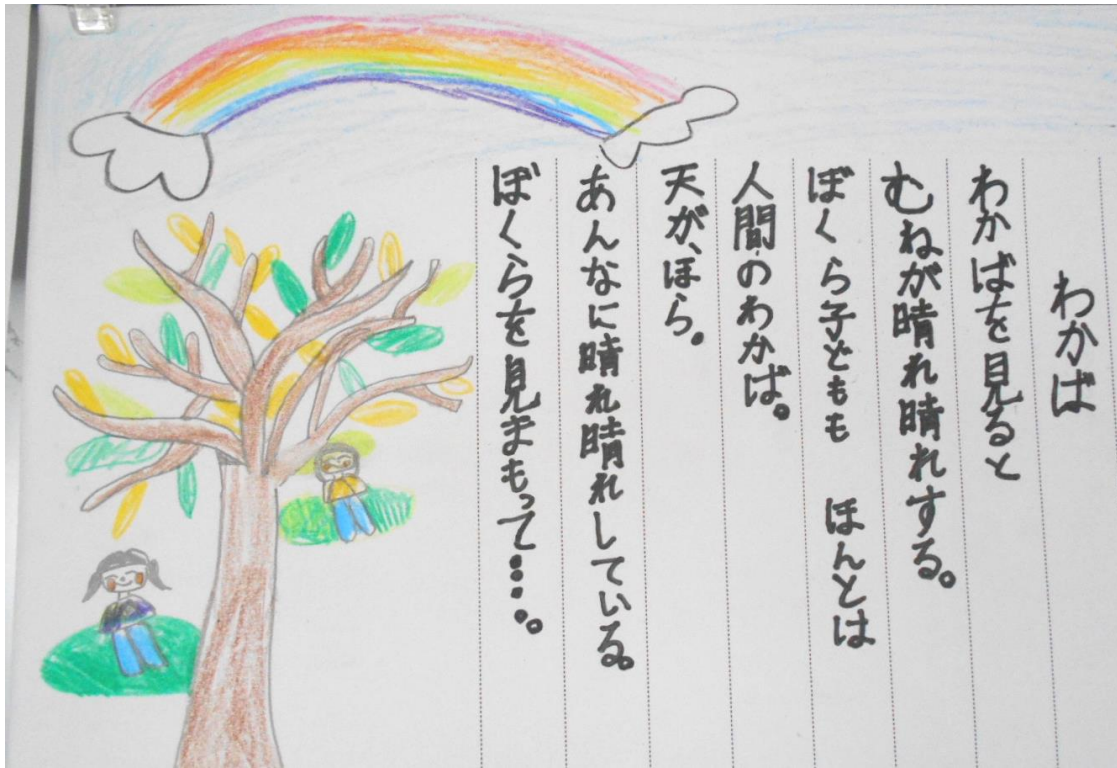 わかば
わかばを見ると
むねが晴れ晴れする。
ぼくら子どもも　ほんとは
人間のわかば。
天が、ほら。
あんなに晴れ晴れしている。
ぼくらを見まもって…。